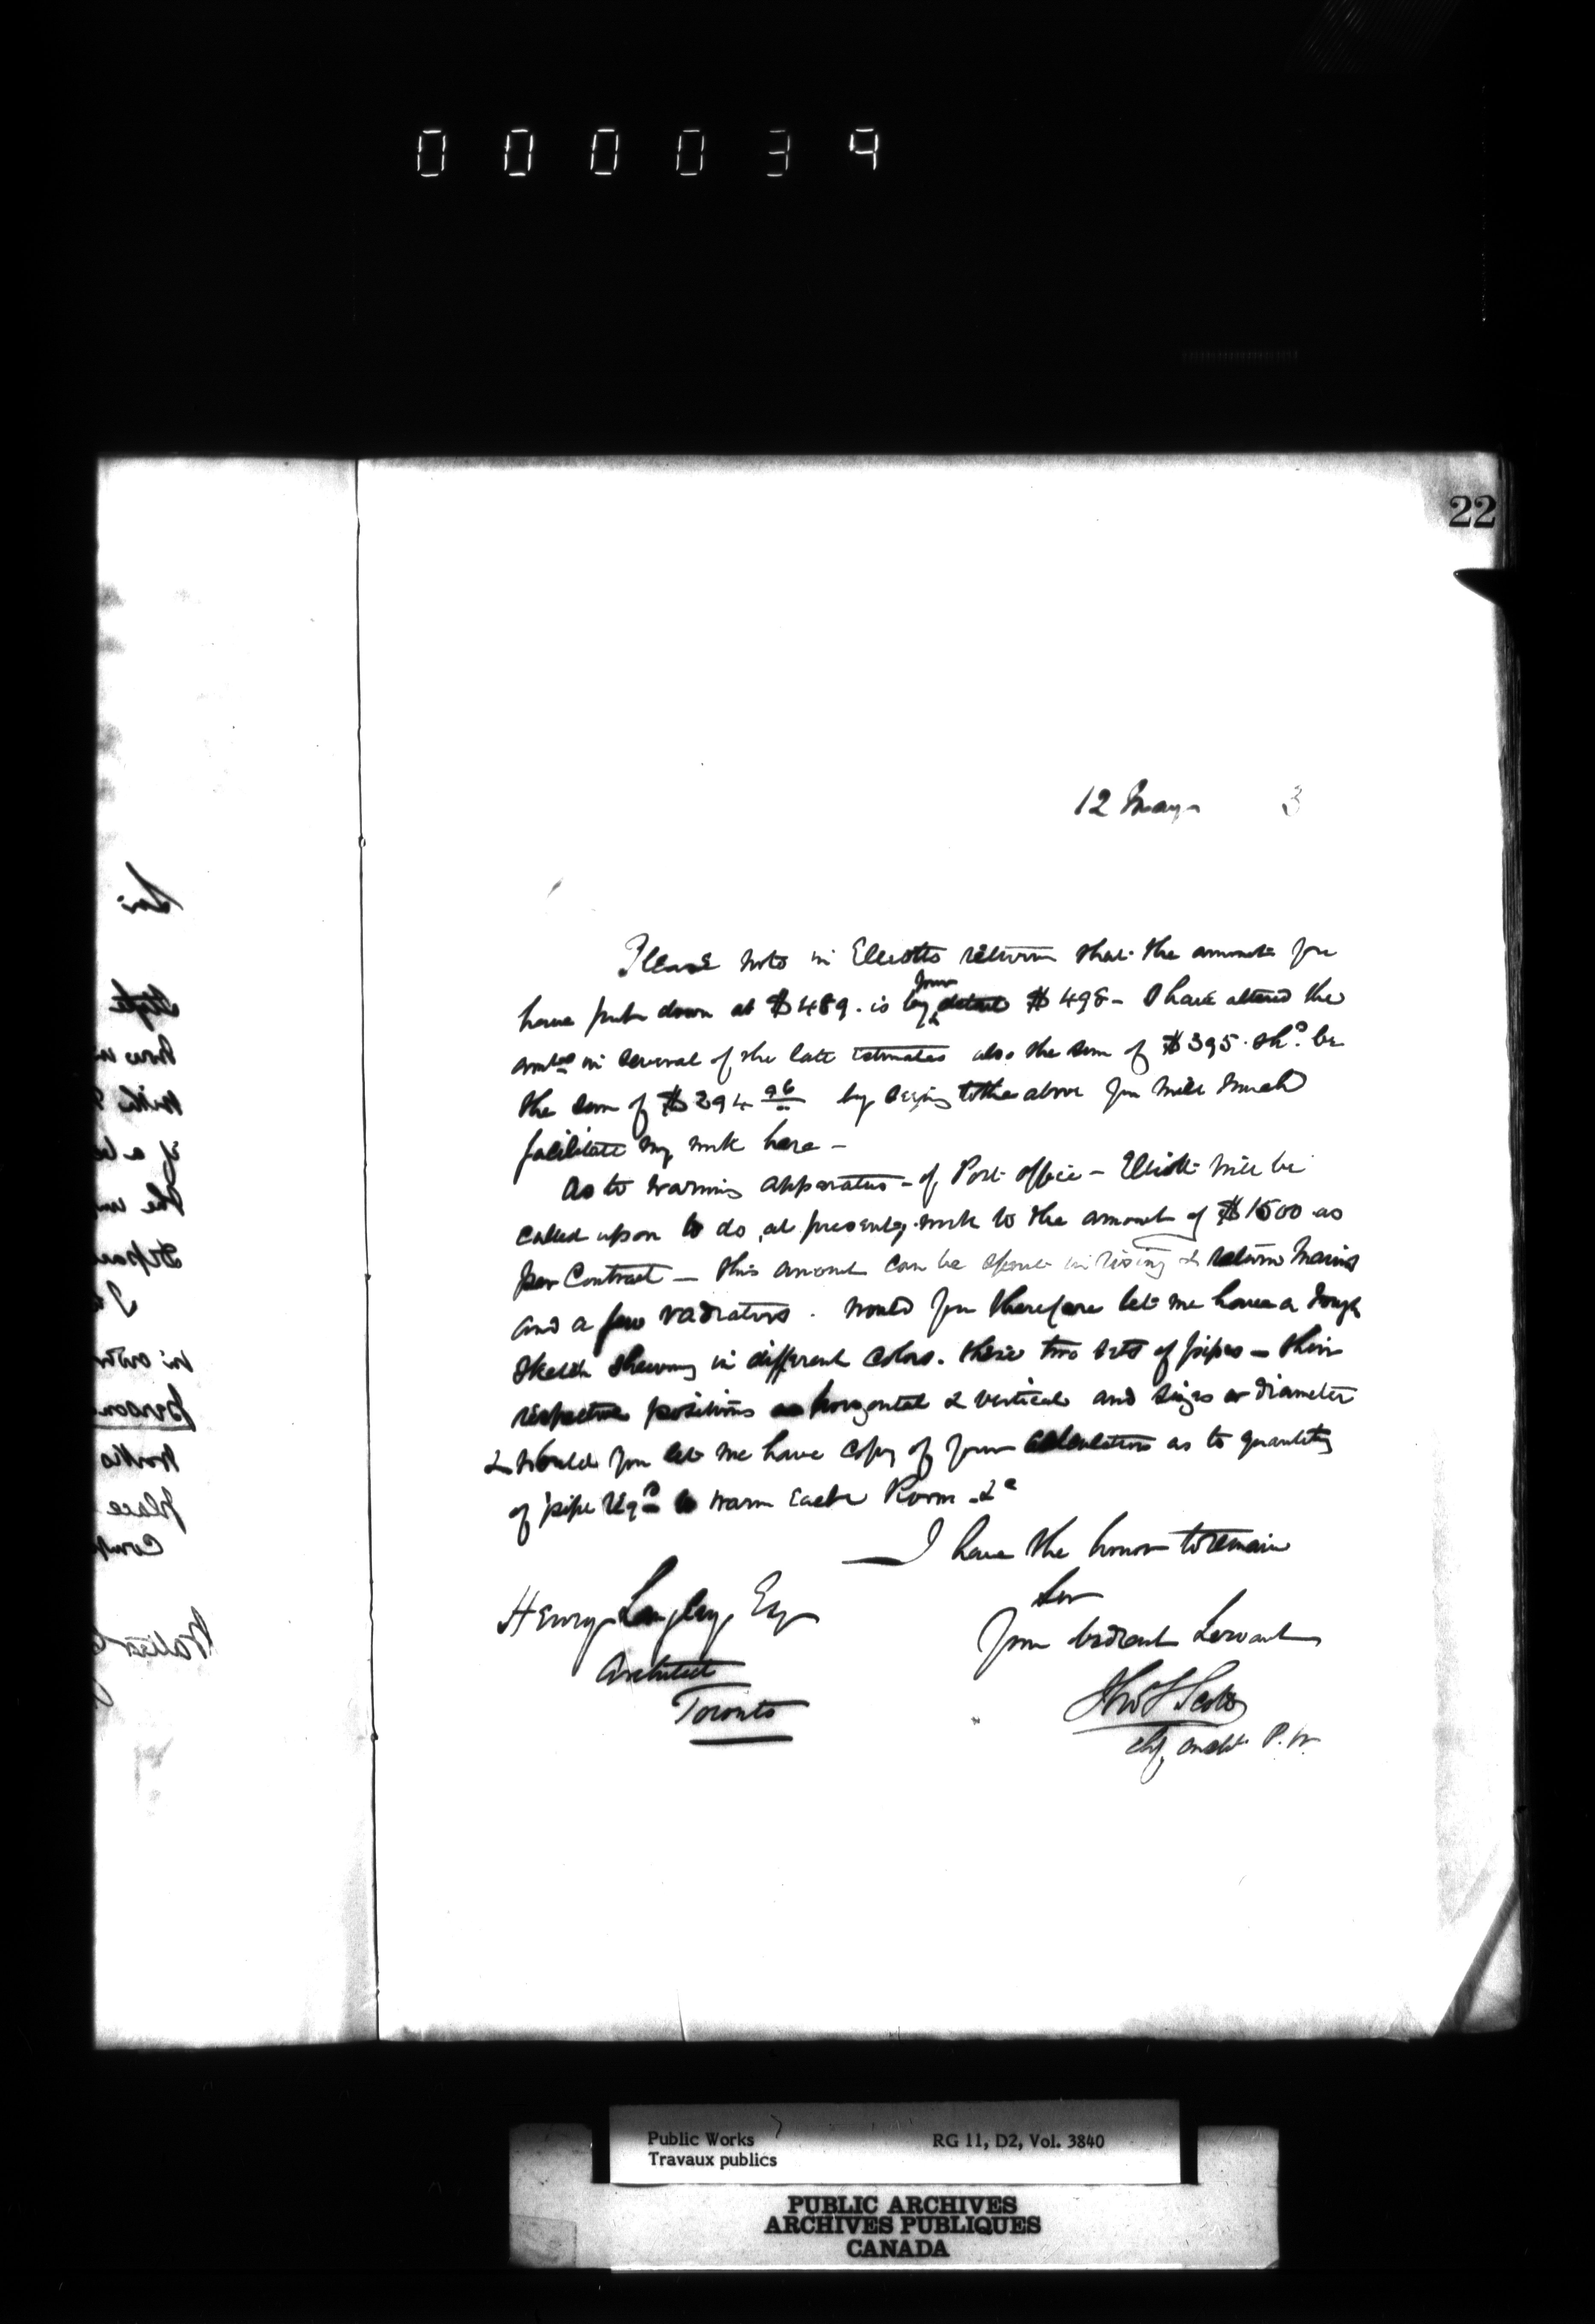 000039
22
12 May 3
Please note in Elliotts return that the amount you
have put down at $489. is by your detail $498 - I have altered the
amts in several of the late Estimates also the sum of $395. shd be
the sum of $394 96 by seeing to the above you will much
facilitate my work here -
As to warming apparatus - of Post office - Elliott will be
called upon to do, at present, work to the amount of $1500 as
per Contract - this amount can be spent in rising & return Mains
and a few radiators. Would you therefore let me have a rough
Sketch shewing in different Colors. these two sets of pipes - their
respective positions as horizontal & vertical and sizes or diameter
& Would you let me have copy of your calculations as to quantity
of pipe reqd to warm each Room &c
I have the honor to remain
Sir
Your obedient Servant
Thos S Scott
Chf Archt P.W.
Henry Langley, Esq
Architect
Toronto
Public Works
Travaux publics
RG 11, D2, Vol. 3840
PUBLIC ARCHIVES
ARCHIVES PUBLIQUES
CANADA